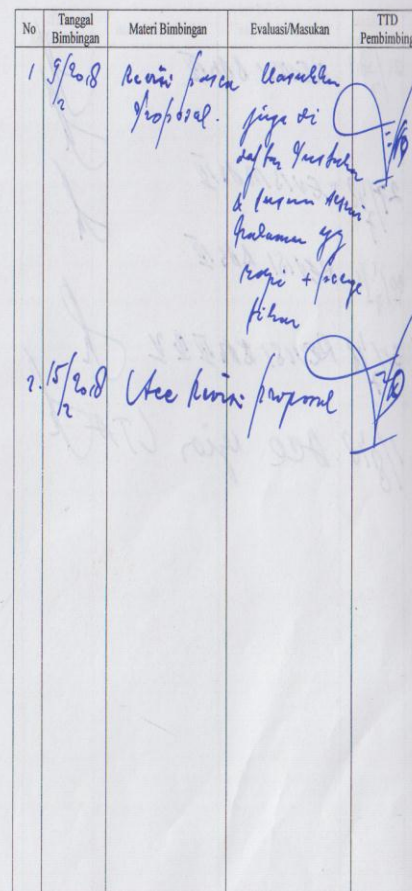 No Tanggal Bimbingan Materi Bimbingan Evaluasi/Masukan TTD Pembimbing
1 9/2 2018 Revisi pasca Masukkan
Proposal. juga di
daftar Pustaka
& susun
halaman yg
rapi +
2. 15/2 2018 Acc Revisi proposal